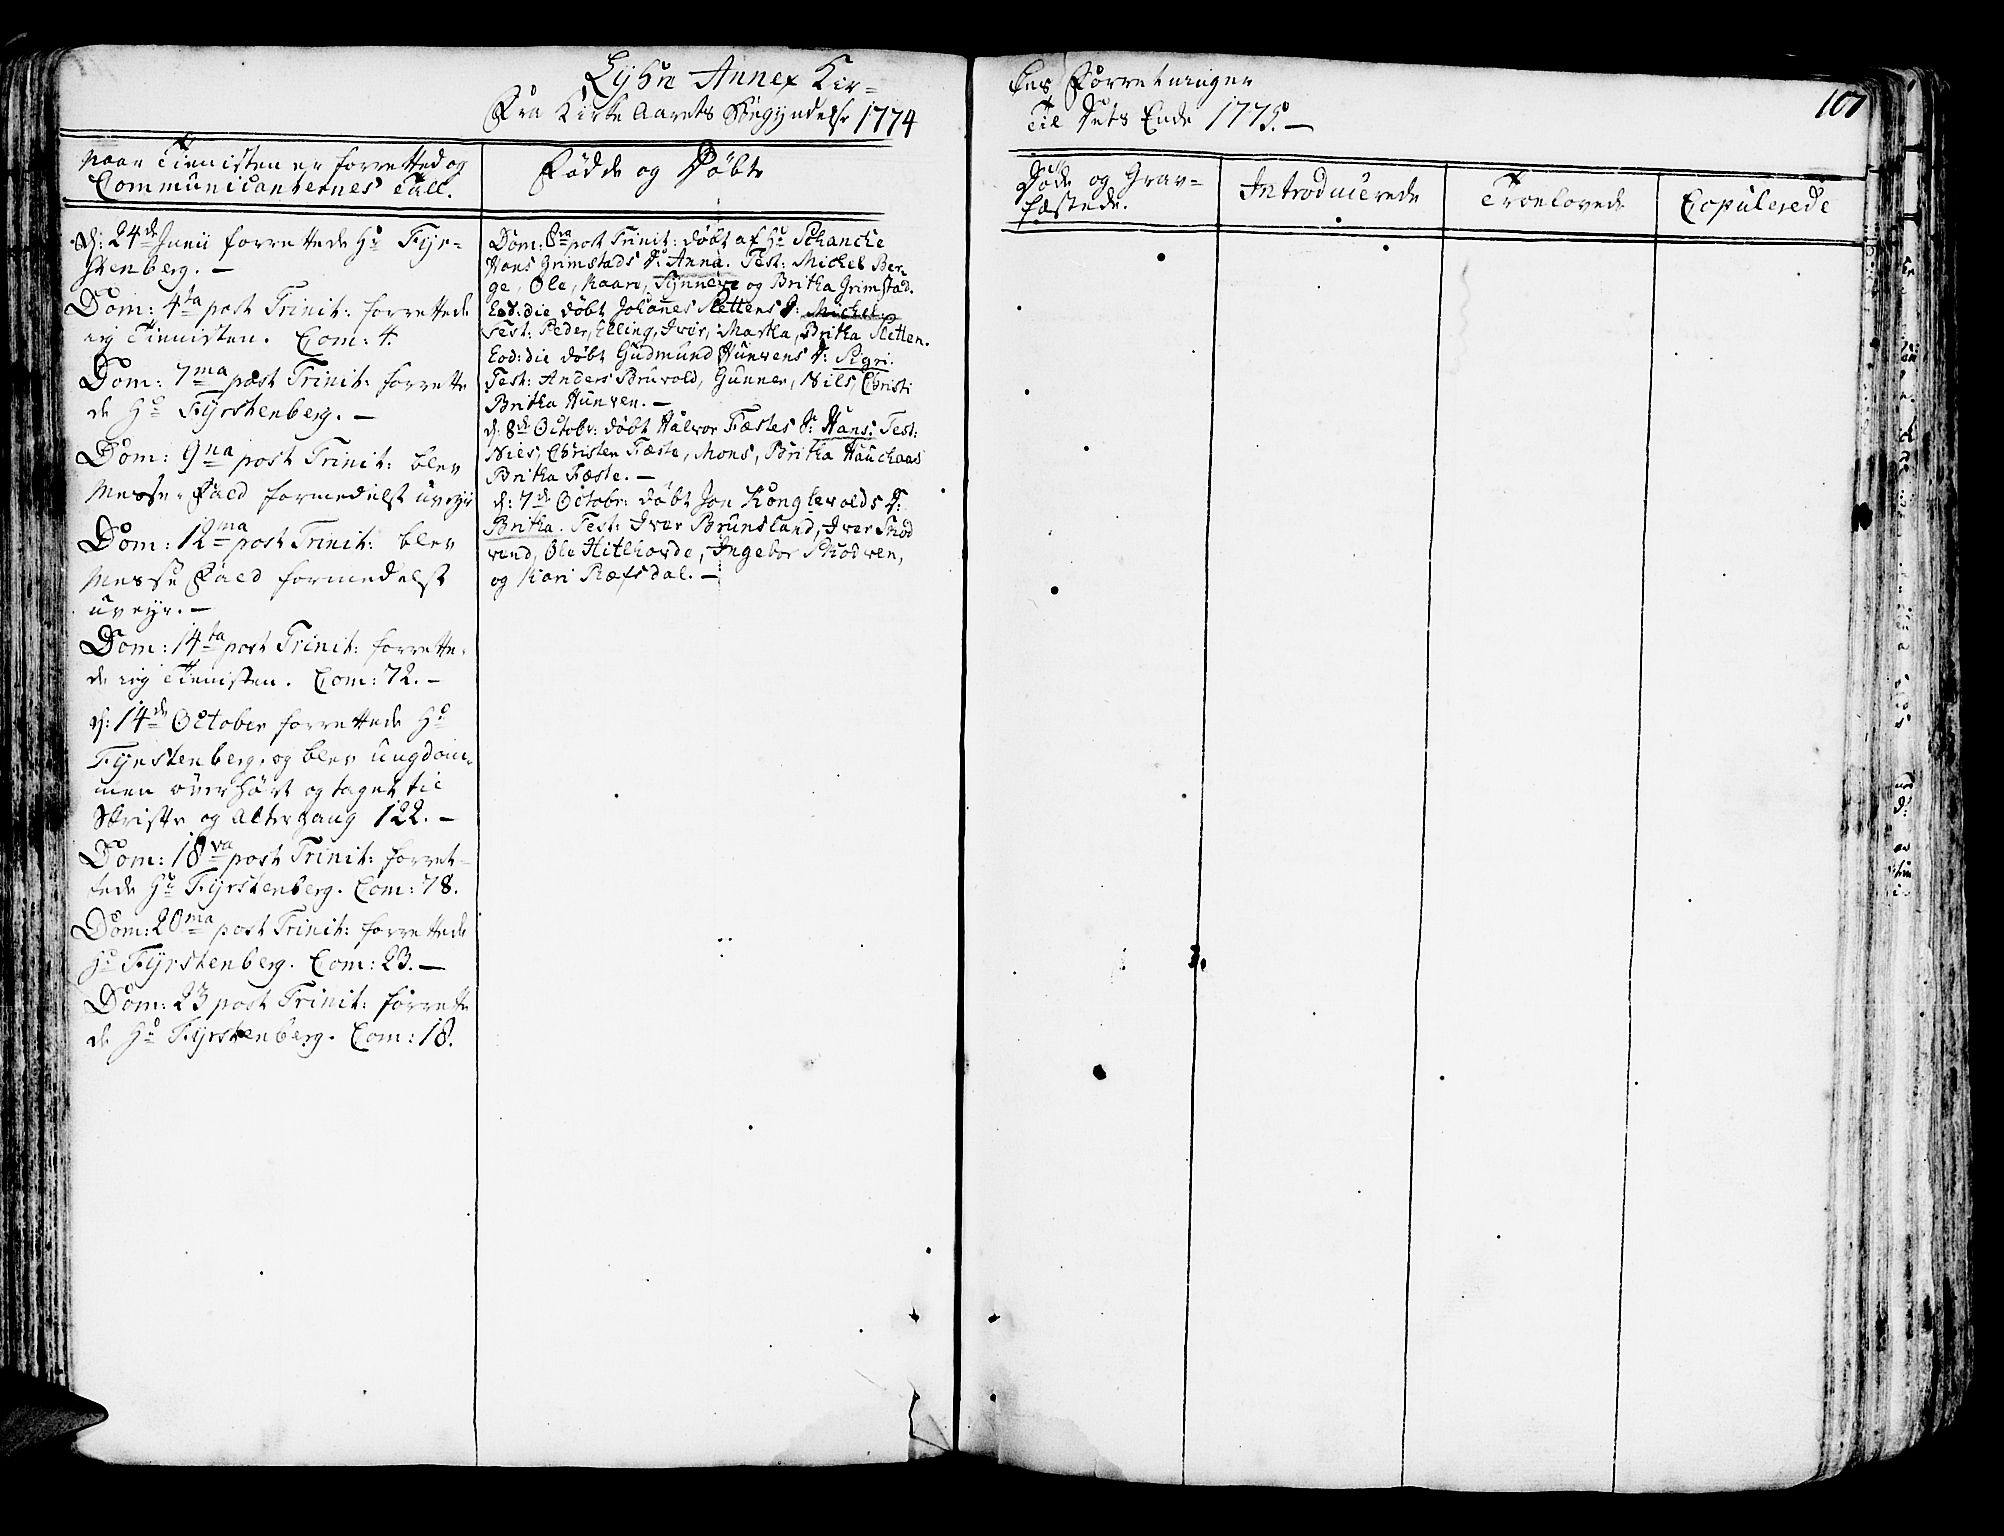 Lyhn Annex Kir=
Fra Kirke Aarets Begyndelse 1774
kes Forretninger
Til Dets Ende 1775. —
107
Naar Tienisten er forretted og
Communicanternes Tall.
Fødde og Døbte
Døde og Grav=
fæstede.
Introducerede
Troelovede
Copulerede
d: 24de Junii forrettede Hr Fyr=
stenberg. —
Dom: 4ta post Trinit: forrettede
ieg Tienisten. Com: 4.
Dom: 7ma post Trinit: forrette
de Hr Fyrstenberg. —
Dom: 9na post Trinit: blev
Messe-Fald formedelst uveyr
Dom: 12ma post Trinit: blev
Messe Fald formedelst
uveyr. —
Dom: 14ta post Trinit: forrette-
de ieg Tienisten. Com: 72. —
d: 14de October forrettede Hr
Fyrstenberg, og blev ungdom-
men overhørt og taget til
Skrifte og Altergang 122. —
Dom: 18va post Trinit: forret-
tede Hr Fyrstenberg. Com: 78.
Dom: 20ma post Trinit: forrettede
Hr Fyrstenberg. Com: 23. —
Dom: 23 post Trinit: forrette
de Hr Fyrstenberg. Com: 18.
Dom: 8va post Trinit: døbt af Hr Schancke
Hans Grimstads D: Anna. Test: Michel Ber-
ge, Ole, Kaare, Synneve og Britha Grimstad.
Eod: die døbt Johannes Slettens D: Michel.
Test: Peder, Elling, Iver, Martha, Britha Sletten.
Eod: die døbt Gudmund Hunvens D: Sigri.
Test: Anders Bruvold, Gunner, Nils, Christi
Britha Hunven. —
d: 8de Octobr: døbt Halvor Fæstes D: Hans: Test:
Niels, Christen Fæste, Mons, Britha Hauchaas
Britha Fæste. —
d: 7de Octobr: døbt Jon Konglevolds D:
Britha. Test: Iver Brunsland, Iver Skod
vend, Ole Hitlhovde, Ingebor Skodven,
og Kari Ræfsdal. —